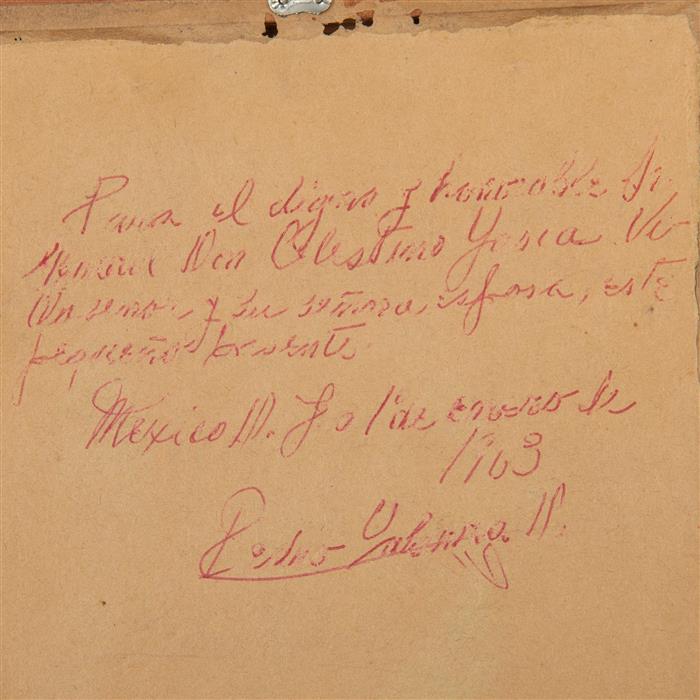 Para el digno y honorable Sr.
General Don Celestino Gasca Vi
llasenor y su señora esposa, este
pequeño presente
Mexico D. F. a 1° de enero de
1963
Pedro D.